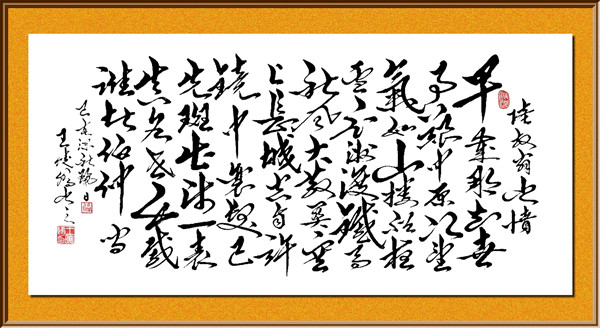 陸放翁書憤
早歲那知世
事艱中原北望
氣如山樓船夜
雪瓜洲渡鐵馬
秋風大散關塞
上長城空自許
鏡中衰鬢已
先斑出師一表
真名世千載
誰堪伯仲間